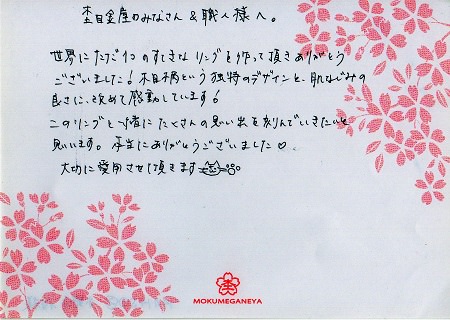 杢目金屋のみなさん&職人様へ。
世界にただ1つのすてきなリングを作って頂きありがとう
ございました!木目柄という独特のデザインと、肌なじみの
良さに、改めて感動しています!
このリングと一緒にたくさんの思い出を刻んでいきたいと
思います。本当にありがとうございました♡
大切に愛用させて頂きます
MOKUMEGANEYA